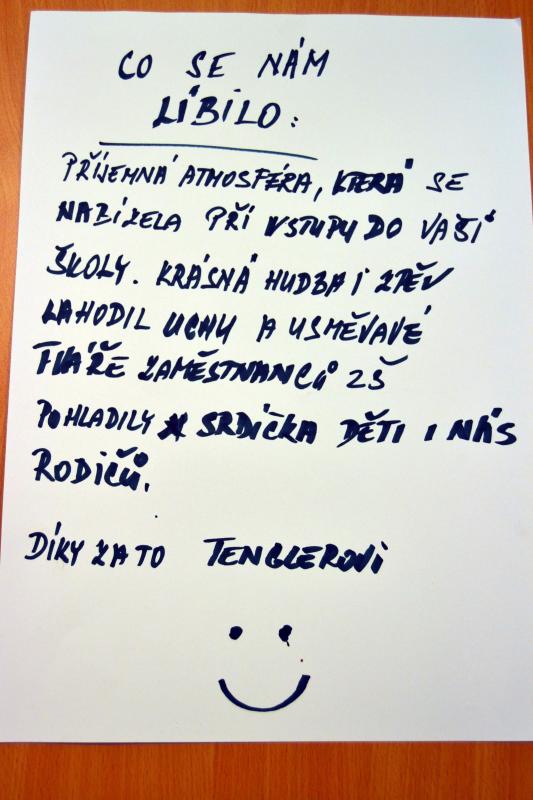 CO SE NÁM
LÍBILO:
PŘÍJEMNÁ ATMOSFÉRA, KTERÁ SE
NABÍZELA PŘI VSTUPU DO VAŠÍ
ŠKOLY. KRÁSNÁ HUDBA I ZPĚV
LAHODIL UCHU A USMĚVAVÉ
TVÁŘE ZAMĚSTNANCŮ ZŠ
POHLADILY SRDÍČKA DĚTÍ I NÁS
RODIČŮ.
DÍKY ZA TO TENGLEROVI